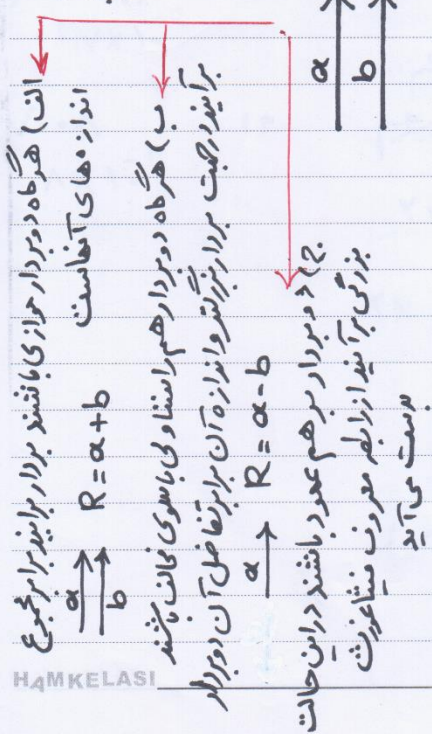 الف) هرگاه دو بردار موازی باشند بردار برایند برابر مجموع
اندازه های آنهاست
a
b
R = a + b
ب) هرگاه دو بردار هم راستا ولی با سوی مخالف باشند
برآیند در جهت بردار بزرگتر و اندازه آن برابر تفاضل آن دو بردار
a
R = a - b
ج) دو بردار بر هم عمود باشند در این حالت
بزرگی برآیند از رابطه معروف فیثاغورث
بدست می آید
a
b
HAMKELASI